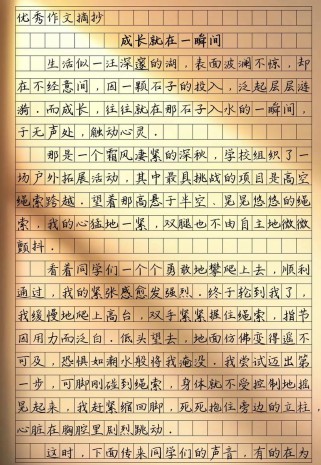 优秀作文摘抄
成长就在一瞬间
生活似一汪深邃的湖，表面波澜不惊，却
在不经意间，因一颗石子的投入，泛起层层涟
漪。而成长，往往就在那石子入水的一瞬间，
于无声处，触动心灵。
那是一个霜风凄紧的深秋，学校组织了一
场户外拓展活动，其中最具挑战的项目是高空
绳索跨越。望着那高悬于半空、晃晃悠悠的绳
索，我的心猛地一紧，双腿也不由自主地微微
颤抖。
看着同学们一个个勇敢地攀爬上去，顺利
通过，我的紧张感愈发强烈。终于轮到我了，
我缓慢地爬上高台，双手紧紧握住绳索，指节
因用力而泛白。低头望去，地面仿佛变得遥不
可及，恐惧如潮水般将我淹没。我尝试迈出第
一步，可脚刚碰到绳索，身体就不受控制地摇
晃起来，我赶紧缩回脚，死死抱住旁边的立柱，
心脏在胸腔里剧烈跳动。
这时，下面传来同学们的声音，有的在为